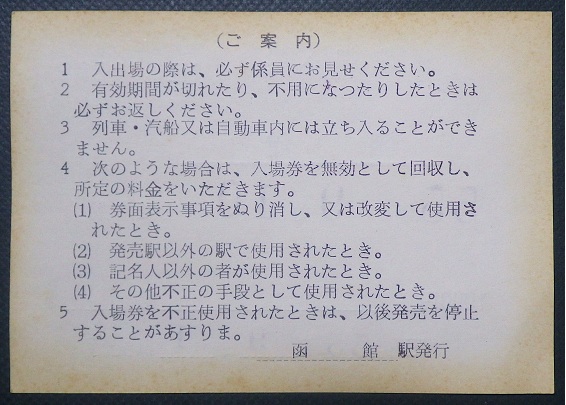 （ご案内）
1　入出場の際は、必ず係員にお見せください。
2　有効期間が切れたり、不用になつたりしたときは
必ずお返しください。
3　列車・汽船又は自動車内には立ち入ることができ
ません。
4　次のような場合は、入場券を無効として回収し、
所定の料金をいただきます。
(1)　券面表示事項をぬり消し、又は改変して使用さ
れたとき。
(2)　発売駅以外の駅で使用されたとき。
(3)　記名人以外の者が使用されたとき。
(4)　その他不正の手段として使用されたとき。
5　入場券を不正使用されたときは、以後発売を停止
することがあすりま。
函館 駅発行